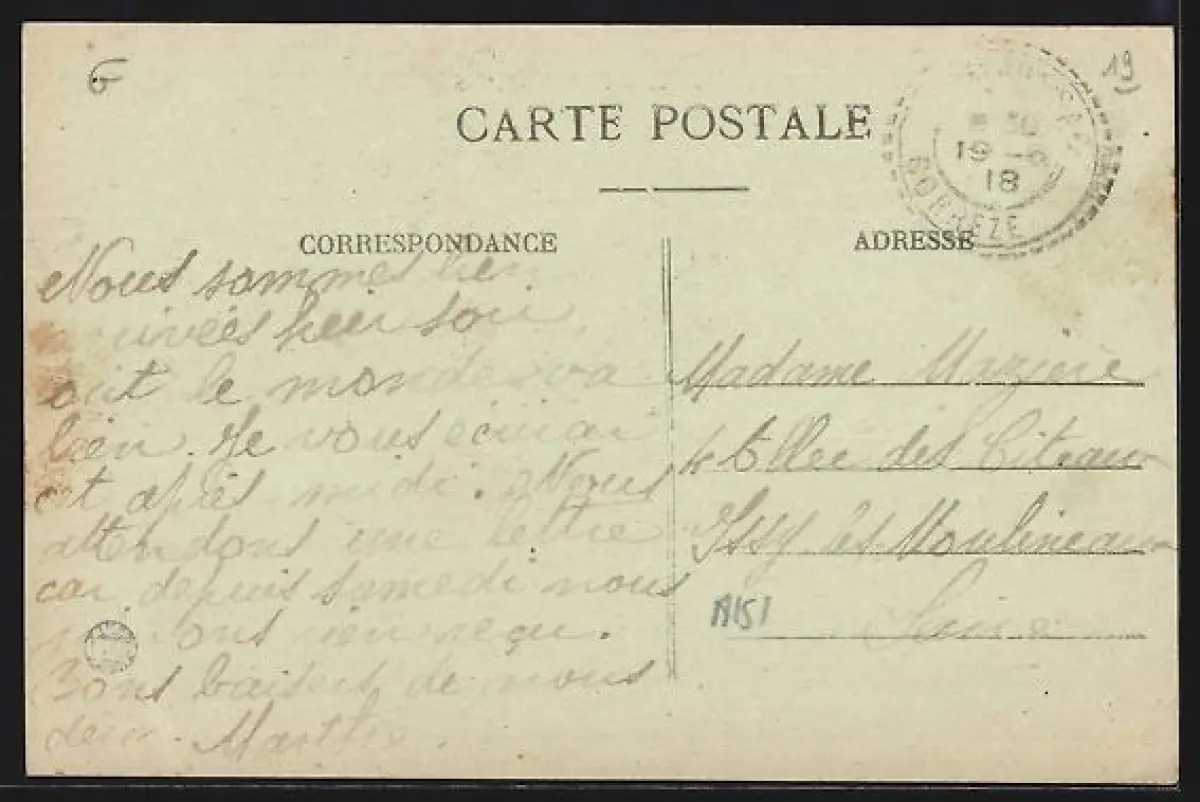 G
19
CARTE POSTALE
19 - 8
18
CORREZE
CORRESPONDANCE
ADRESSE
Nous sommes bien
arrivées hier soir
tout le monde va
bien. Je vous écrirai
cet après midi. Nous
attendons une lettre
car depuis samedi nous
n'avons rien reçu.
Bons baisers de nous
deux. Marthe.
Madame Mazière
Allée des Citeaux
Issy les Moulineaux
Seine
A151